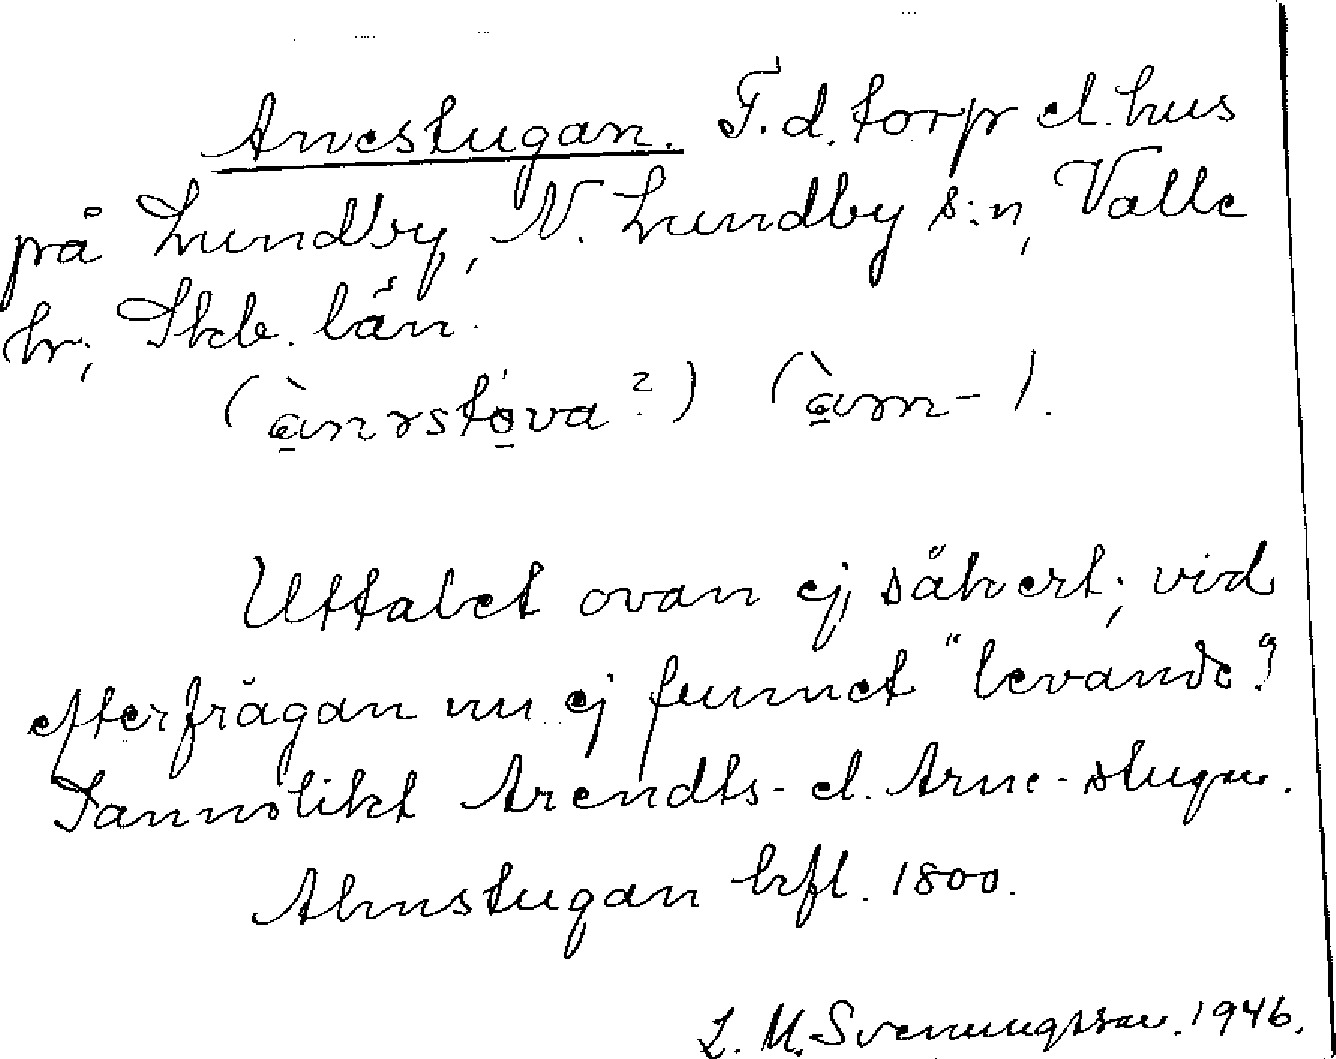 Anestugan. F.d. torp el. hus
på Lundby, N. Lundby s:n, Valle
hr, Skb. län.
(ànrstova?) (àm-).
Uttalet ovan ej säkert; vid
efterfrågan nu ej funnet "levande".
Sannolikt Arendts- el. Arne-stugan.
Almstugan hfl. 1800.
L. M. Svenungsson. 1946.